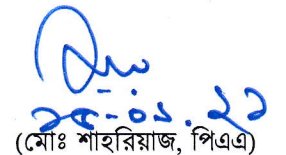 ২৫-০১.২১
(মোঃ শাহরিয়াজ, পিএএ)